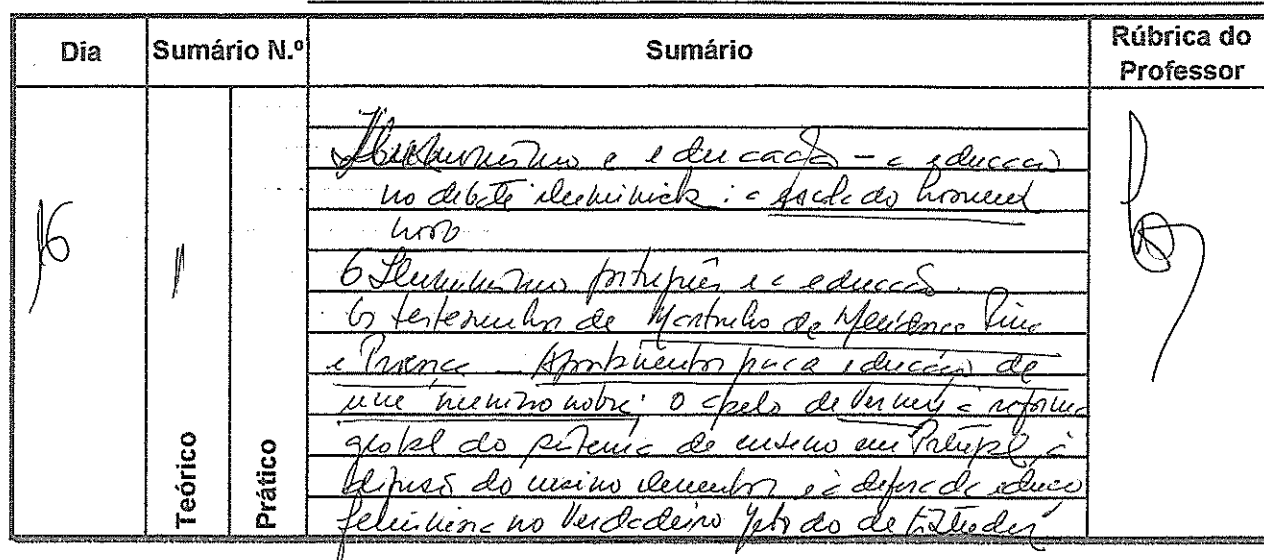 Dia Sumário N.º Sumário Rúbrica do Professor
16 1
Iluminismo e educação – a educação
no debate iluminista: a escola do homem
novo
O Iluminismo português e a educação.
Os testemunhos de Martinho de Mendonça Pina
e Proença – Apontamentos para a educação de
um menino nobre. O apelo de Verney à reforma
global do sistema de ensino em Portugal, à
difusão do ensino elementar e à defesa da educação
feminina no Verdadeiro Método de Estudar
Teórico
Prático